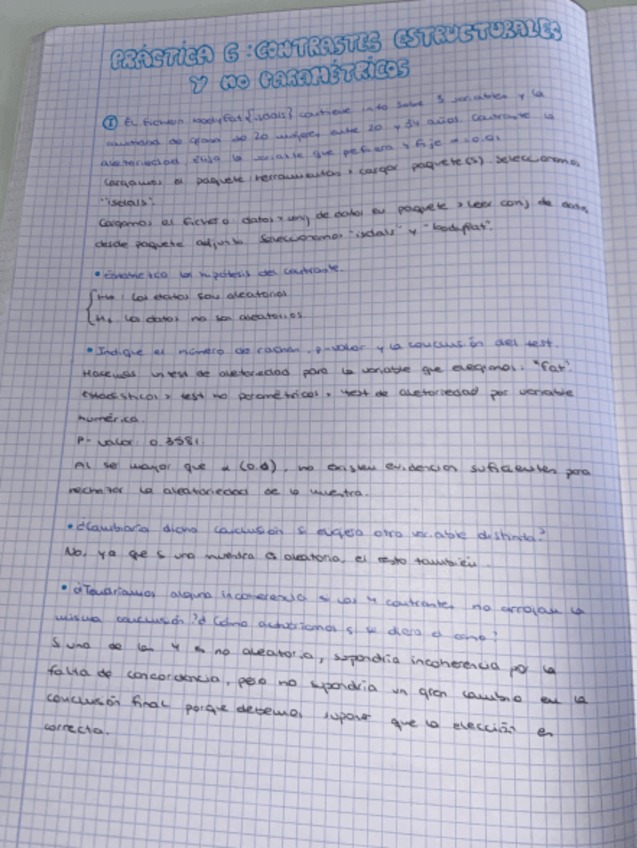 PRÁCTICA 6: CONTRASTES ESTRUCTURALES
Y NO PARAMÉTRICOS
① El fichero bodyfat{isdals} contiene info sobre 3 variables y la
cantidad de grasa de 20 mujeres entre 20 y 34 años. Contraste la
aleatoriedad. Elija la variable que prefiera y fije α = 0.01
Cargamos el paquete herramientas > cargar paquete(s). Seleccionamos
"isdals".
Cargamos el fichero datos > conj de datos en paquete > Leer conj de datos
desde paquete adjunto. Seleccionamos "isdals" y "bodyfat".
• Establezca las hipótesis del contraste.
H0: Los datos son aleatorios
H1: Los datos no son aleatorios
• Indique el número de rachas, p-valor y la conclusión del test.
Hacemos un test de aleatoriedad para la variable que elegimos: "Fat".
Estadísticos > test no paramétricos > test de aleatoriedad por variable
numérica.
P-valor: 0.3581.
Al ser mayor que α (0.01), no existen evidencias suficientes para
rechazar la aleatoriedad de la muestra.
• ¿Cambiaría dicha conclusión si eligiera otra variable distinta?
No, ya que si una muestra es aleatoria, el resto también.
• ¿Tendríamos alguna incoherencia si los 4 contrastes no arrojan la
misma conclusión? ¿Cómo actuaríamos si se diera el caso?
Si una de las 4 es no aleatoria, supondría incoherencia por la
falta de concordancia, pero no supondría un gran cambio en la
conclusión final porque debemos suponer que la elección es
correcta.